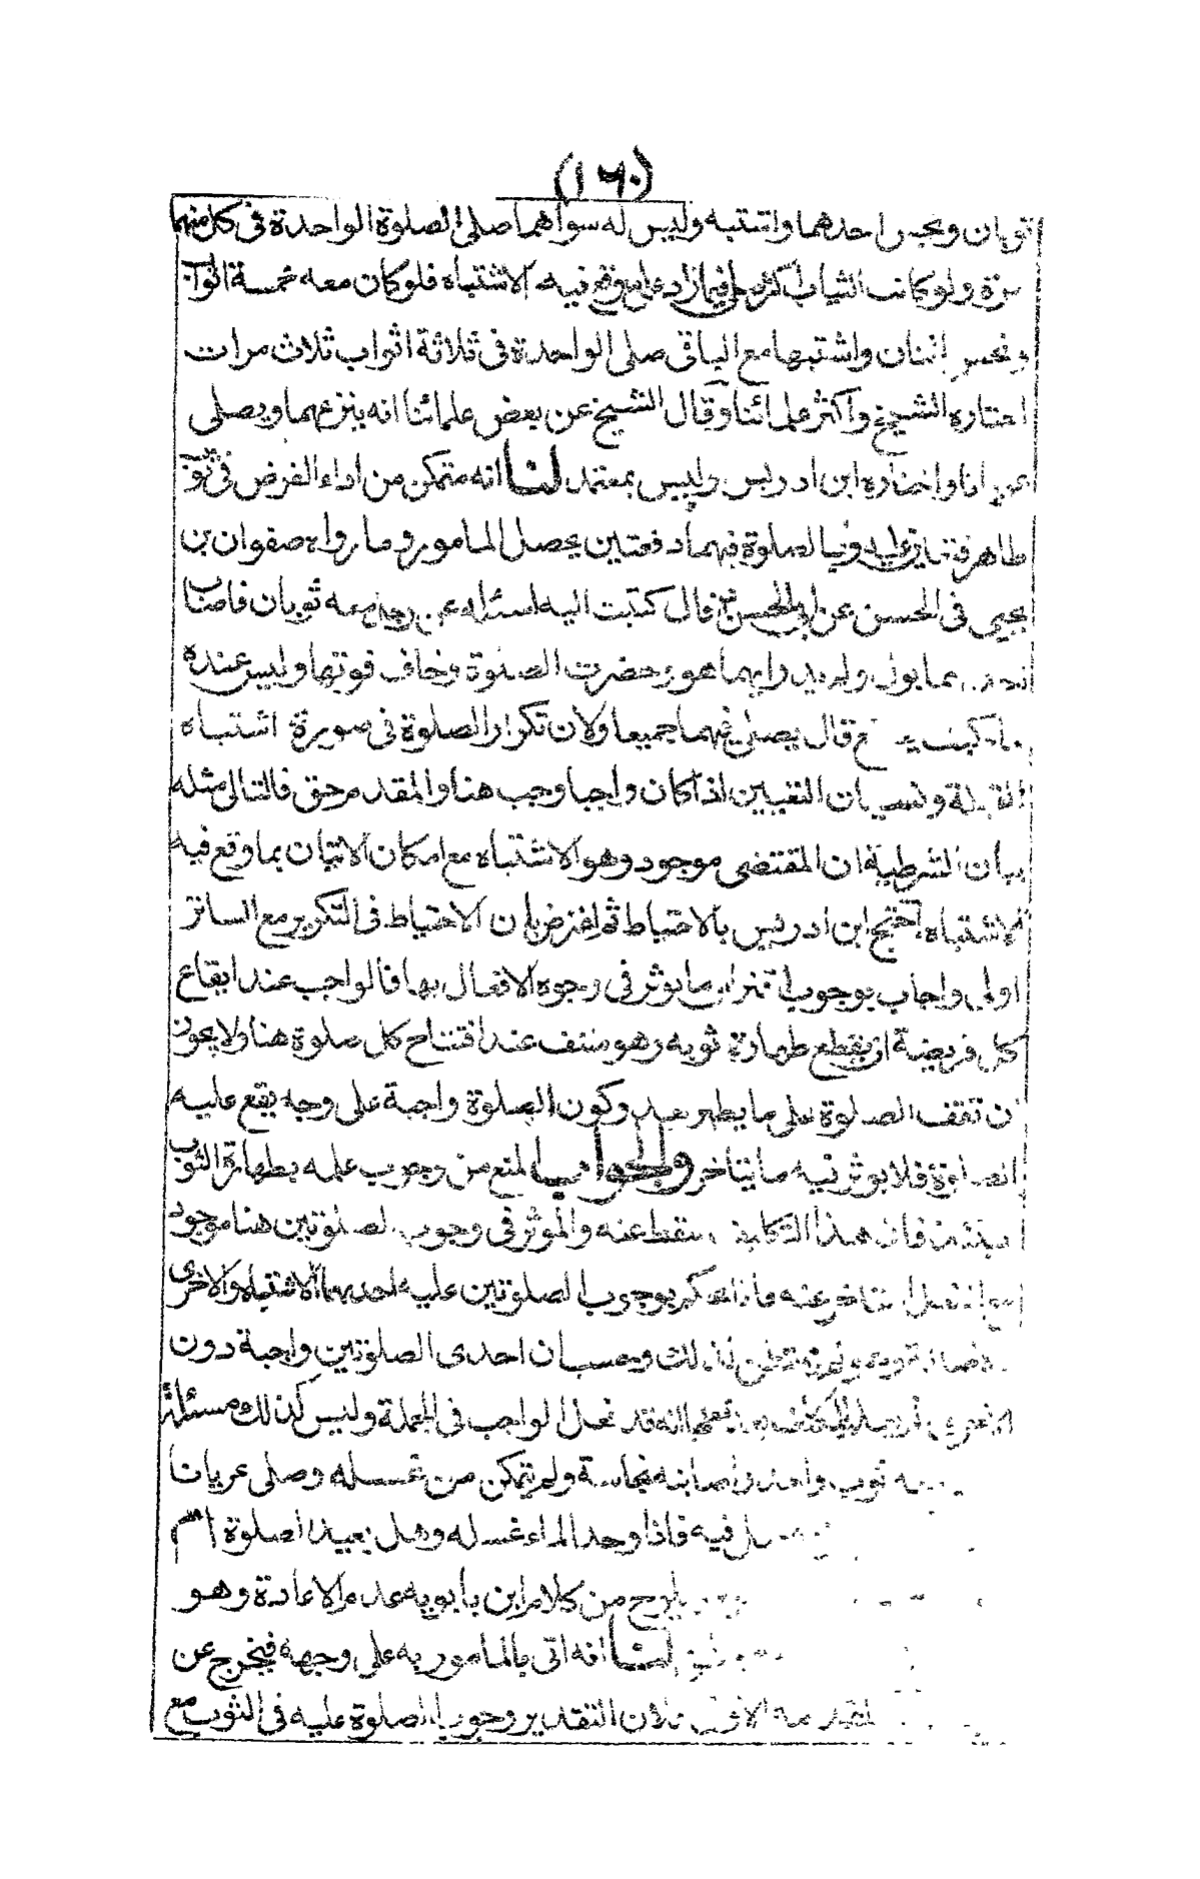 (١٦٠)
ثوبان ونجس احدهما واشتبه وليس له سواهما صلى الصلوة الواحدة فى كل منهما
مرة ولو كانت الثياب اكثر صلى فيما زاد على ما وقع فيه الاشتباه فلو كان معه خمسة اثواب
ونجس اثنان واشتبها مع الباقى صلى الواحدة فى ثلاثة اثواب ثلاث مرات
اختاره الشيخ واكثر علمائنا وقال الشيخ عن بعض علمائنا انه ينزعهما ويصلى
عريانا واختاره ابن ادريس وليس بمعتمد لنا انه متمكن من اداء الفرض فى ثوب
طاهر فتعين عليه وبالصلوة فيهما دفعتين يحصل المامور وما رواه صفوان بن
يحيى فى الحسن عن ابى الحسن ع قال كتبت اليه اسئله عن رجل معه ثوبان فاصاب
احدهما بول ولم يدر ايهما هو وحضرت الصلوة وخاف فوتها وليس عنده
ماء كيف يصنع قال يصلى فيهما جميعا ولان تكرار الصلوة فى صورة اشتباه
القبلة ونسيان التعيين اذا كان واجبا وجب هنا والمقدم حق فالتالى مثله
بيان الشرطية ان المقتضى موجود وهو الاشتباه مع امكان الاتيان بما وقع فيه
الاشتباه احتج ابن ادريس بالاحتياط ثم اعترض بان الاحتياط فى التكرير مع الساتر
اولى واجاب بوجوب اقتران ما يوثر فى وجوه الافعال بها فالواجب عند ايقاع
كل فريضة ان يقطع طهارة ثوبه وهو منتف عند افتتاح كل صلوة هنا ولا يجوز
ان تقف الصلوة على ما يظهر بعد وكون الصلوة واجبة على وجه يقع عليه
الصلوة فلا يوثر فيه ما يتاخر والجواب المنع من وجوب علمه بطهارة الثوب
فان هذا التكليف سقط عنه والموثر فى وجوب الصلوتين هنا موجود
مع الفعل لا متاخر عنه فانا نحكم بوجوب الصلوتين عليه احديهما للاشتباه والاخرى
لذلك وحسبان احدى الصلوتين واجبة دون
الاخرى انه قد فعل الواجب فى الجملة وليس كذلك مسئلة
ثوب واحد واصابته نجاسة ولم يتمكن من غسله وصلى عريانا
فيه فاذا وجد الماء غسله وهل يعيد الصلوة ام
يلوح من كلام ابن بابويه عدم الاعادة وهو
لنا انه اتى بالمامور به على وجهه فيخرج عن
لان التقدير وجوب الصلوة عليه فى الثوب مع